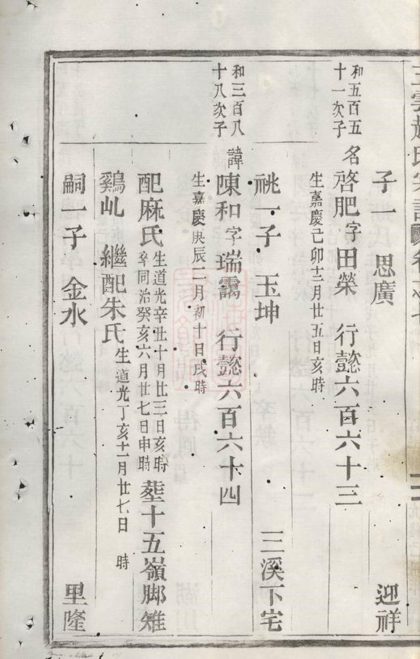 子一 思廣 迎祥
和五百五
十一次子
名啓肥 字田榮 行懿六百六十三
生嘉慶己卯十二月廿五日亥時
祧一子 玉坤 三溪下宅
和三百八
十八次子
諱陳和 字瑞靄 行懿六百六十四
生嘉慶庚辰二月初十日戌時
配麻氏 生道光辛丑十月廿三日亥時
卒同治癸亥六月廿七日申時 塟十五嶺脚雉
鷄乢 繼配朱氏 生道光丁亥十一月廿七日 時
嗣一子 金水 里隆